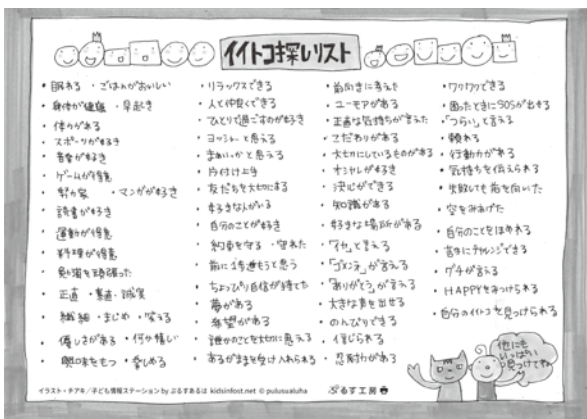 イイトコ探しリスト
・眠れる ・ごはんがおいしい
・身体が健康 ・早起き
・体力がある
・スポーツが好き
・音楽が好き
・ゲームが得意
・努力家 ・マンガが好き
・読書が好き
・運動が得意
・料理が得意
・勉強を頑張った
・正直 ・素直 ・誠実
・繊細 ・まじめ ・笑える
・優しさがある ・何か嬉しい
・興味をもつ ・楽しめる
・リラックスできる
・人と仲良くできる
・ひとりで過ごすのが好き
・ヨッシャーと思える
・まぁいっかと思える
・片付け上手
・友だちを大切にする
・好きな人がいる
・自分のことが好き
・約束を守る ・守れた
・前に1歩進もうと思う
・ちょっぴり自信が持てた
・夢がある
・希望がある
・誰かのことを大切に思える
・あるがままを受け入れられる
・前向きに考えた
・ユーモアがある
・正直な気持ちが言えた
・こだわりがある
・大切にしているものがある
・オシャレが好き
・決心ができる
・知識がある
・好きな場所がある
・「イヤ」と言える
・「ゴメンネ」が言える
・「ありがとう」が言える
・大きな声を出せる
・のんびりできる
・信じられる
・忍耐力がある
・ワクワクできる
・困ったときにSOSが出せる
・「つらい」と言える
・頼れる
・行動力がある
・気持ちを伝えられる
・失敗しても前を向いた
・空をみあげた
・自分のことをほめれる
・苦手にチャレンジできる
・グチが言える
・HAPPYをみつけられる
・自分のイイトコを見つけられる
他にも
いっぱい
見つけてね
イラスト・チアキ/子ども情報ステーション by ぷるすあるは kidsinfost.net © pulusualuha
ぷるす工房